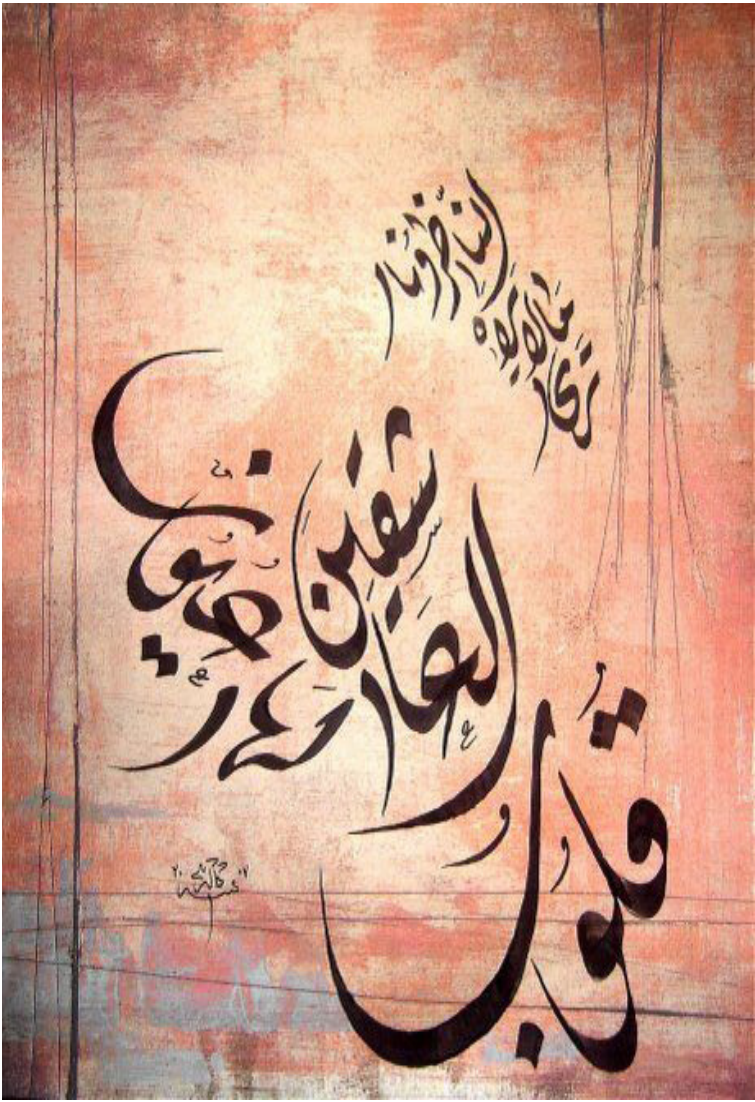 قلوب
العاشقين
لها عيون
ترى
ما لا يراه
الناظرونا